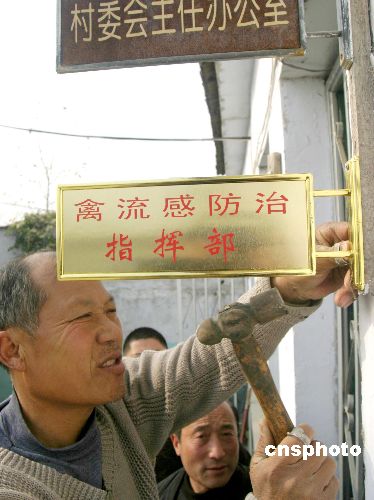 村委会主任办公室
禽流感防治
指挥部
cnsphoto